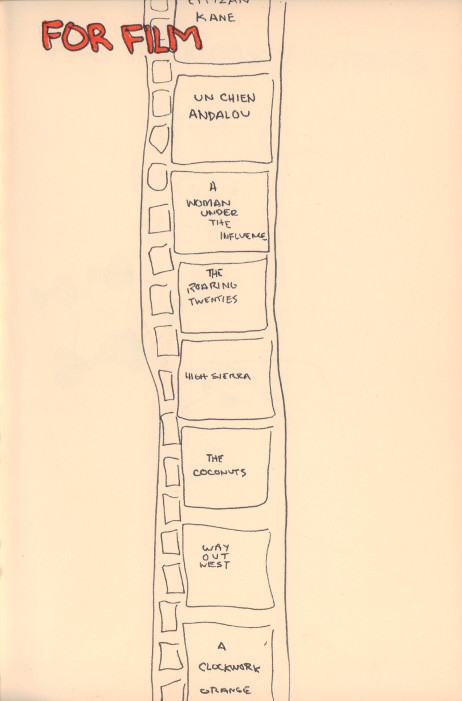 FOR FILM
CITIZAN
KANE
UN CHIEN
ANDALOU
A
WOMAN
UNDER
THE
INFLUENCE
THE
ROARING
TWENTIES
HIGH SIERRA
THE
COCONUTS
WAY
OUT
WEST
A
CLOCKWORK
ORANGE